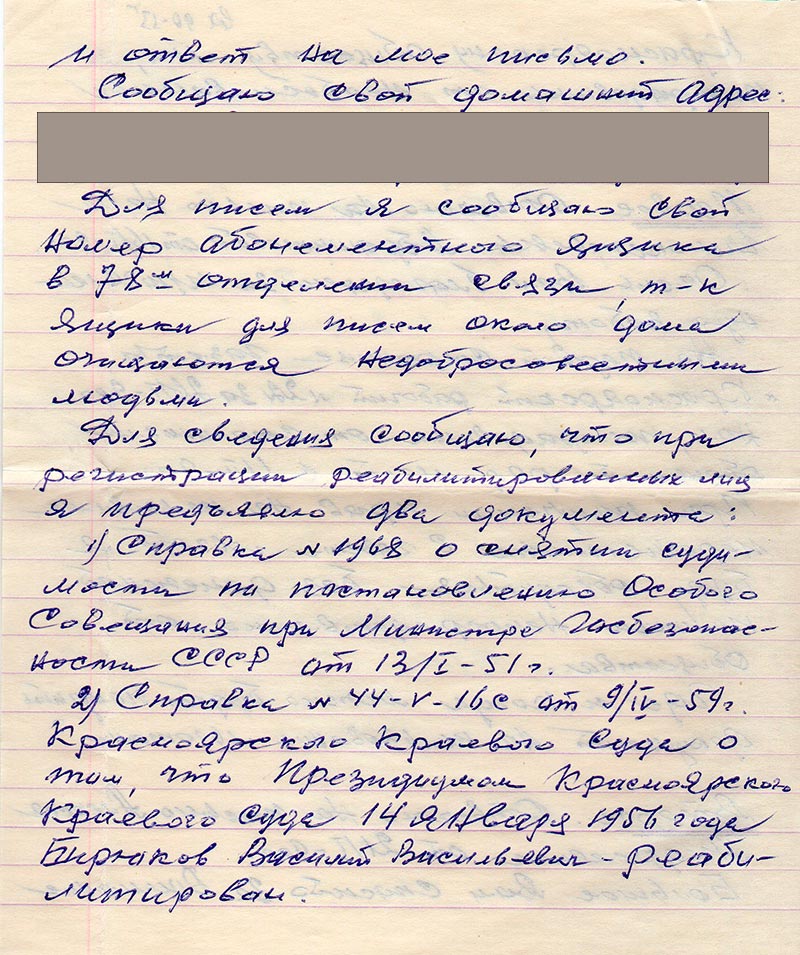 и ответ на мое письмо.
Сообщаю свой домашний адрес:
Для писем я сообщаю свой
номер абонементного ящика
в 78м отделении связи, т-к
ящики для писем около дома
очищаются недобросовестными
людьми.
Для сведения сообщаю, что при
регистрации реабилитированных лиц
я предъявлю два документа:
1) Справка N 1968 о снятии суди-
мости по постановлению Особого
Совещания при Министре Госбезопас-
ности СССР от 13/I-51г.
2) Справка N 44-У-16с от 9/IV-59г.
Красноярского Краевого Суда о
том, что Президиумом Красноярского
Краевого Суда 14 Января 1956 года
Бирюков Василий Васильевич - реаби-
литирован.